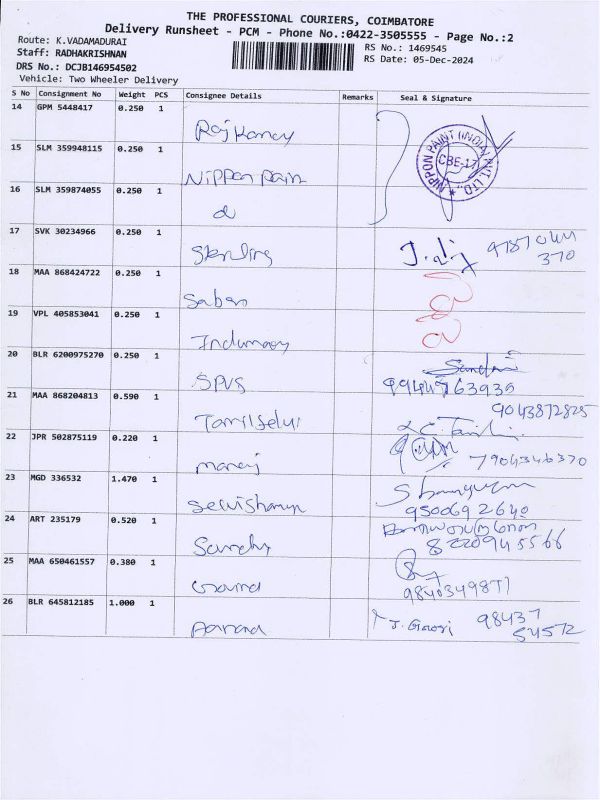 THE PROFESSIONAL COURIERS, COIMBATORE
Delivery Runsheet - PCM - Phone No.:0422-3505555 - Page No.:2
Route: K.VADAMADURAI
RS No.: 1469545
Staff: RADHAKRISHNAN
RS Date: 05-Dec-2024
DRS No.: DCJB146954502
Vehicle: Two Wheeler Delivery
S No Consignment No Weight PCS Consignee Details Remarks Seal & Signature
14 GPM 5448417 0.250 1
NIPPON PAINT (INDIA) PVT. LTD. ★
CBE-17
15 SLM 359948115 0.250 1 Nippon pain
16 SLM 359874055 0.250 1
17 SVK 30234966 0.250 1 Sterling
370
18 MAA 868424722 0.250 1 Saban
19 VPL 405853041 0.250 1
20 BLR 6200975270 0.250 1 SPVS
21 MAA 868204813 0.590 1 Tamilselvi
9043872825
22 JPR 502875119 0.220 1 manoj
7904346370
23 MGD 336532 1.470 1
9500692640
24 ART 235179 0.520 1
8220945566
25 MAA 650461557 0.380 1
9840349877
26 BLR 645812185 1.000 1 Aanand
J. Gowri 98437
54572